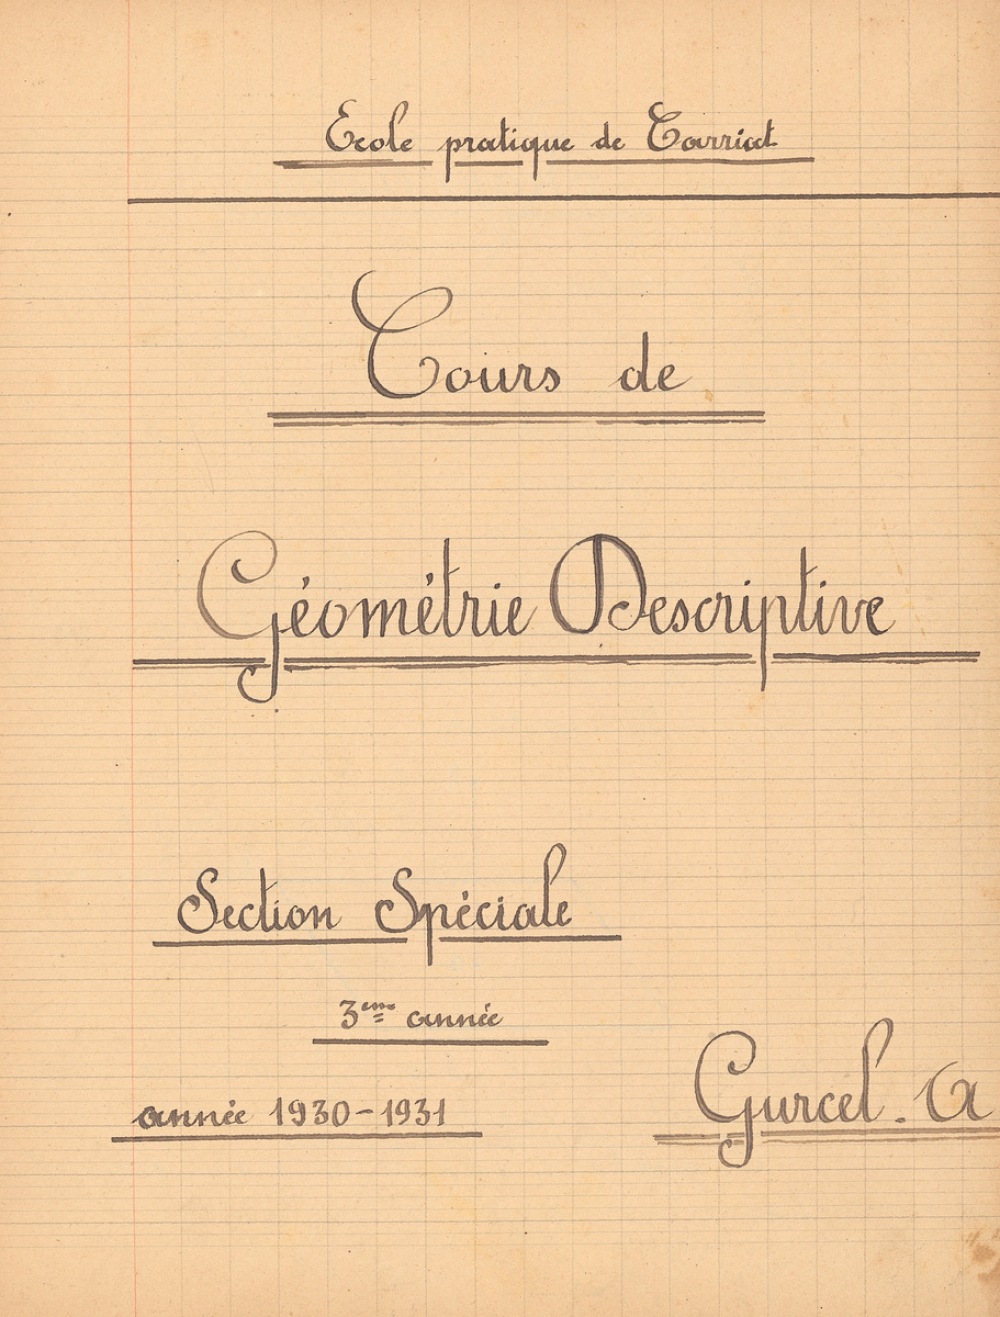 Ecole pratique de Carriat
Cours de
Géométrie Descriptive
Section Spéciale
3ème année
année 1930-1931
Gurcel. A